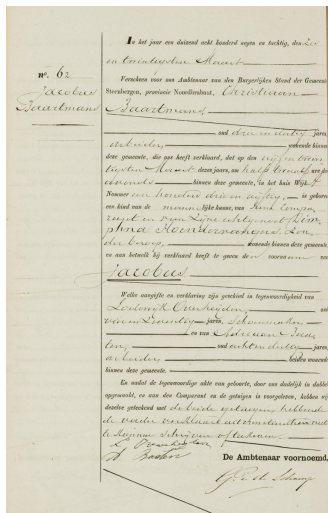 In het jaar een duizend acht honderd zeven en tachtig, den zes
en twintigsten Maart
n°. 62
Verscheen voor ons Ambtenaar van den Burgerlijken Stand der Gemeente
Jacobus
Steenbergen, provincie Noordbrabant, Christiaan
Baartmans
Baartmans
oud drie en dertig jaren,
arbeider wonende binnen
deze gemeente, die ons heeft verklaard, dat op den vijf en twin
tigsten Maart dezes jaars, om half twaalf ure des
avonds binnen deze gemeente, in het huis Wijk
Nummer een honderd drie en vijftig, is geboren
een kind van de mannelijke kunne, van hem Compa
rant en van zijne echtgenoot Dim
phna
der beroep, wonende binnen deze gemeente,
en aan hetwelk hij verklaard heeft te geven den voornaam van
Jacobus
Welke aangifte en verklaring zijn geschied in tegenwoordigheid van
Lodewijk oud
vier en zeventig jaren, Schoenmaker
en van Adriaan
oud acht en dertig jaren,
arbeider beiden wonende
binnen deze gemeente.
En nadat de tegenwoordige akte van geboorte, door ons dadelijk in dubbel
opgemaakt, en aan den Comparant en de getuigen is voorgelezen, hebben wij
dezelve geteekend met de beide getuigen, hebbende
de vader verklaard uit onkunde niet
te kunnen schrijven of teekenen.
De Ambtenaar voornoemd,